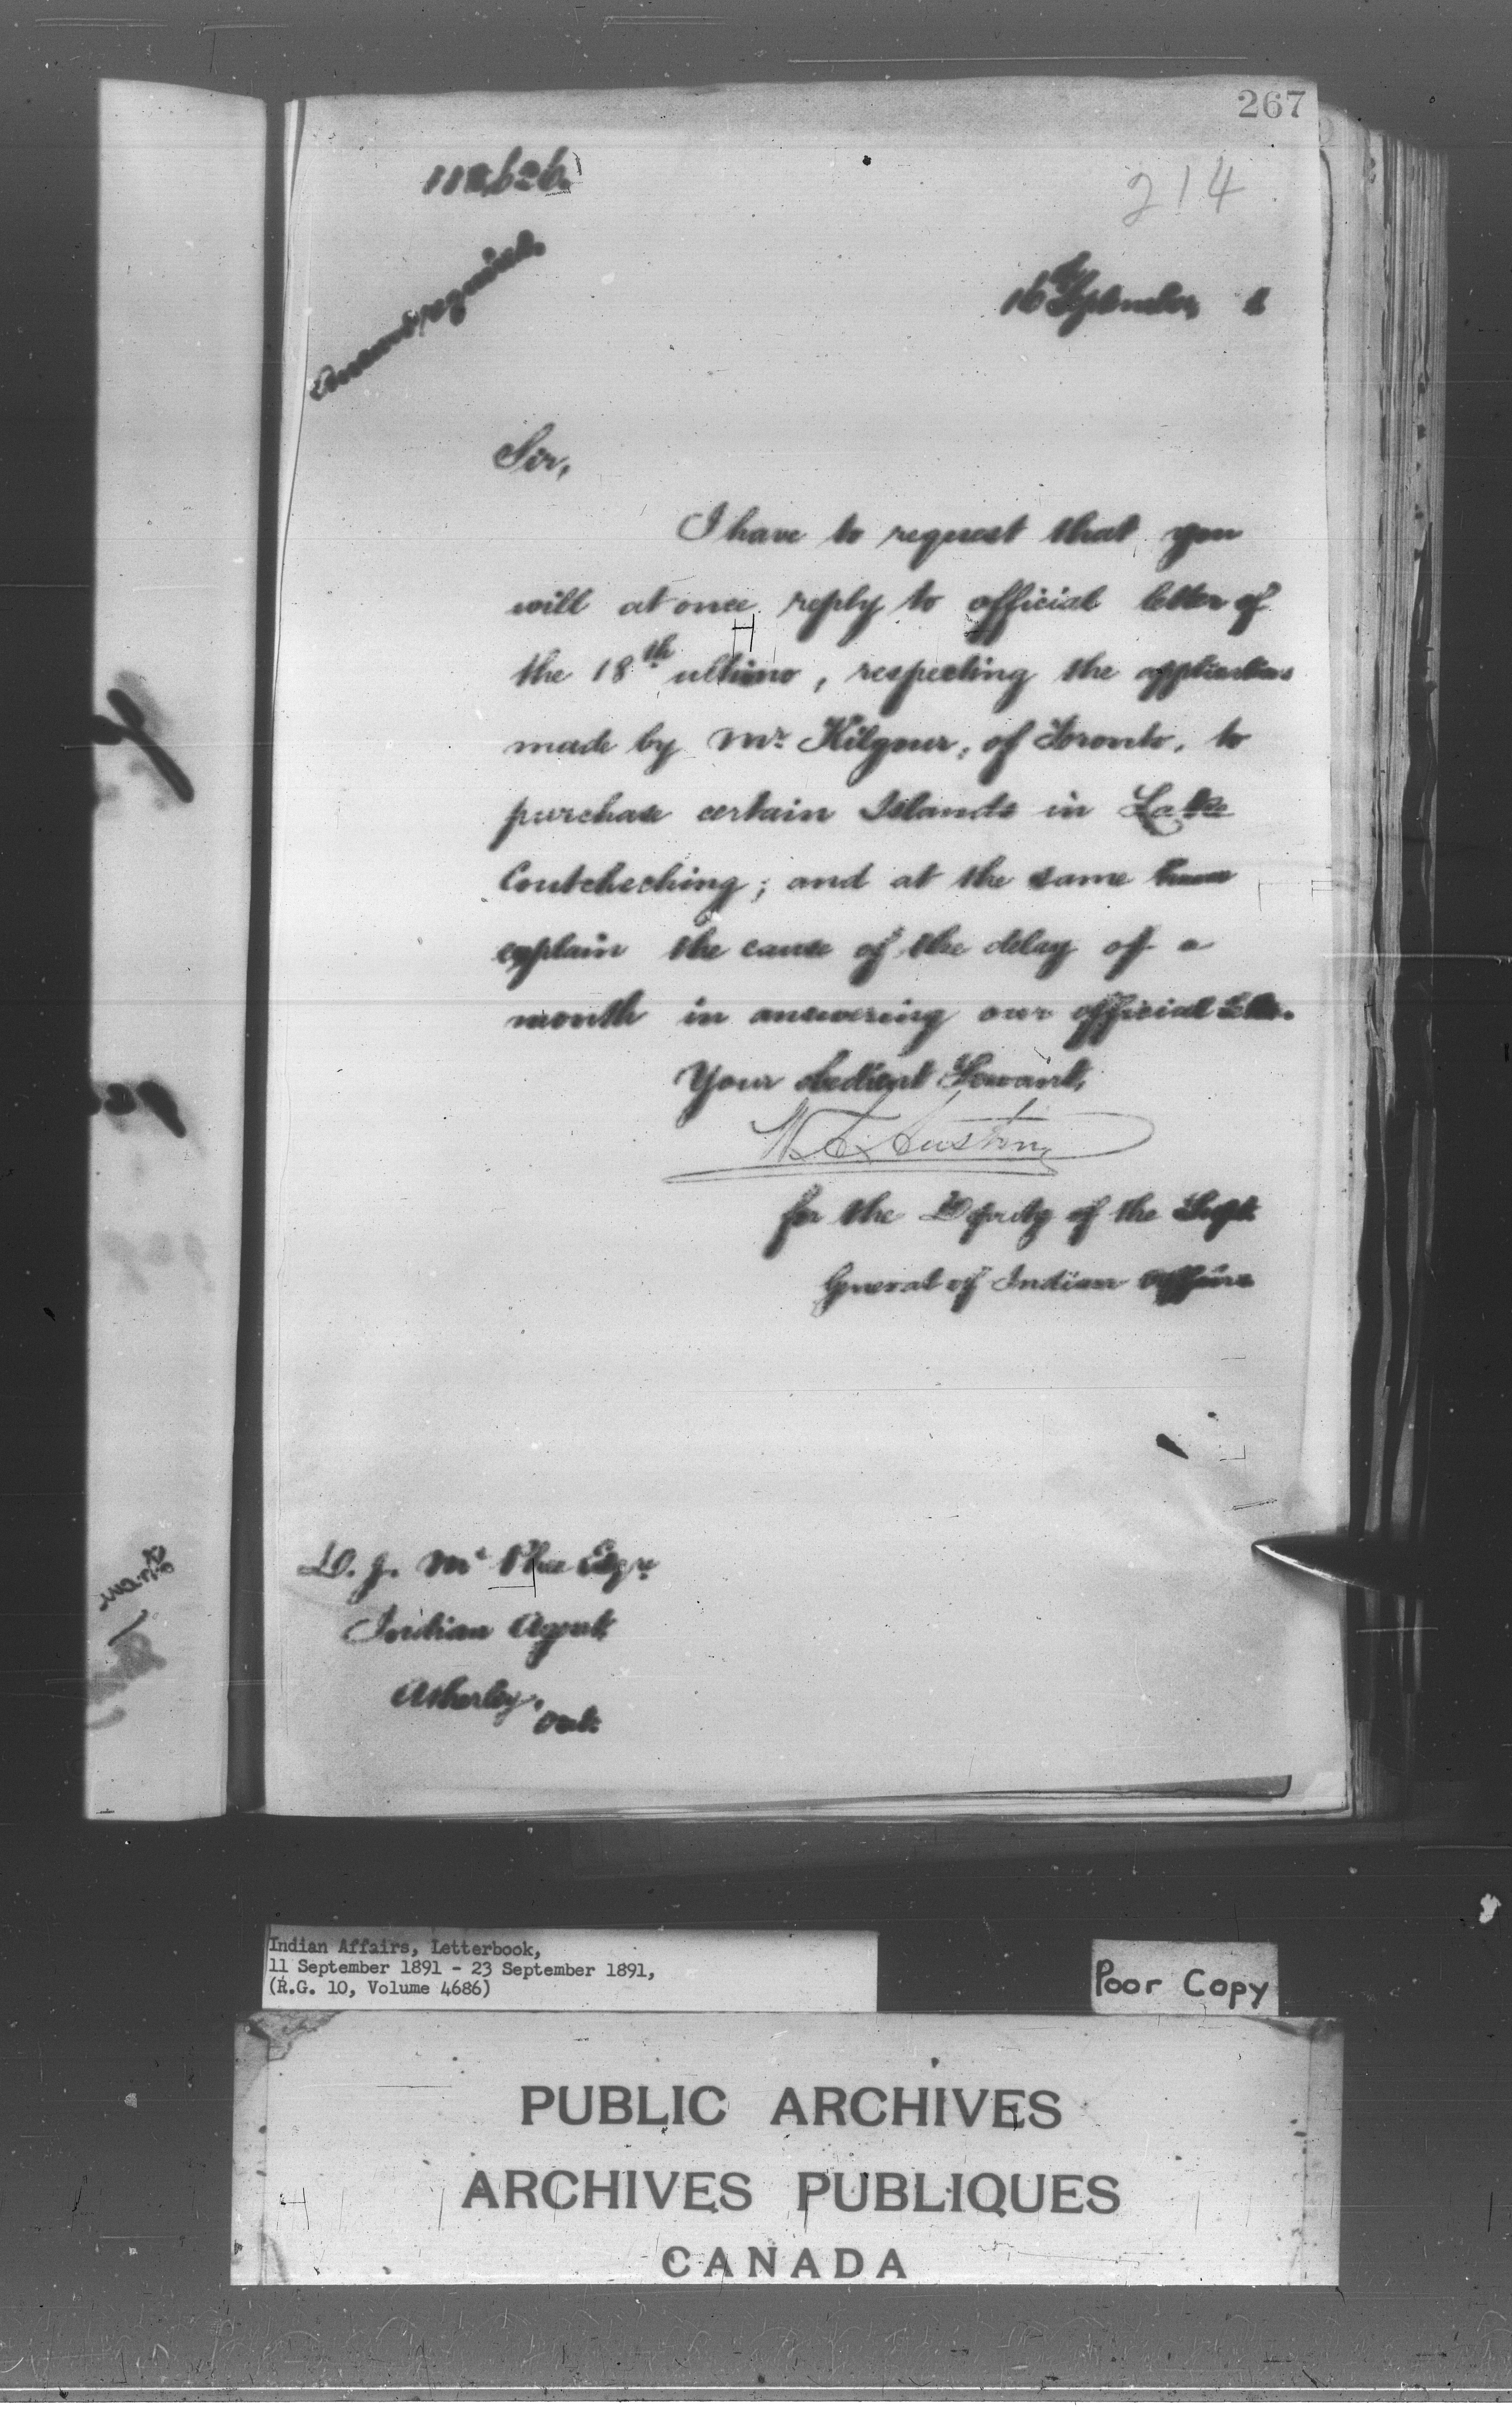 267
214
16th September 1
Sir,
I have to request that you
will at once reply to official letter of
the 18th ultimo, respecting the application
made by Mr Kilgour, of Toronto, to
purchase certain Islands in Lake
Coutcheching; and at the same time
explain the cause of the delay of a
month in answering our official letter.
Your obedient Servant,
for the Deputy of the Supt.
General of Indian Affairs
D. J. McPhee Esqre
Indian Agent,
Atherley,
Ont.
Indian Affairs, Letterbook,
11 September 1891 - 23 September 1891,
(R.G. 10, Volume 4686)
Poor Copy
PUBLIC ARCHIVES
ARCHIVES PUBLIQUES
CANADA